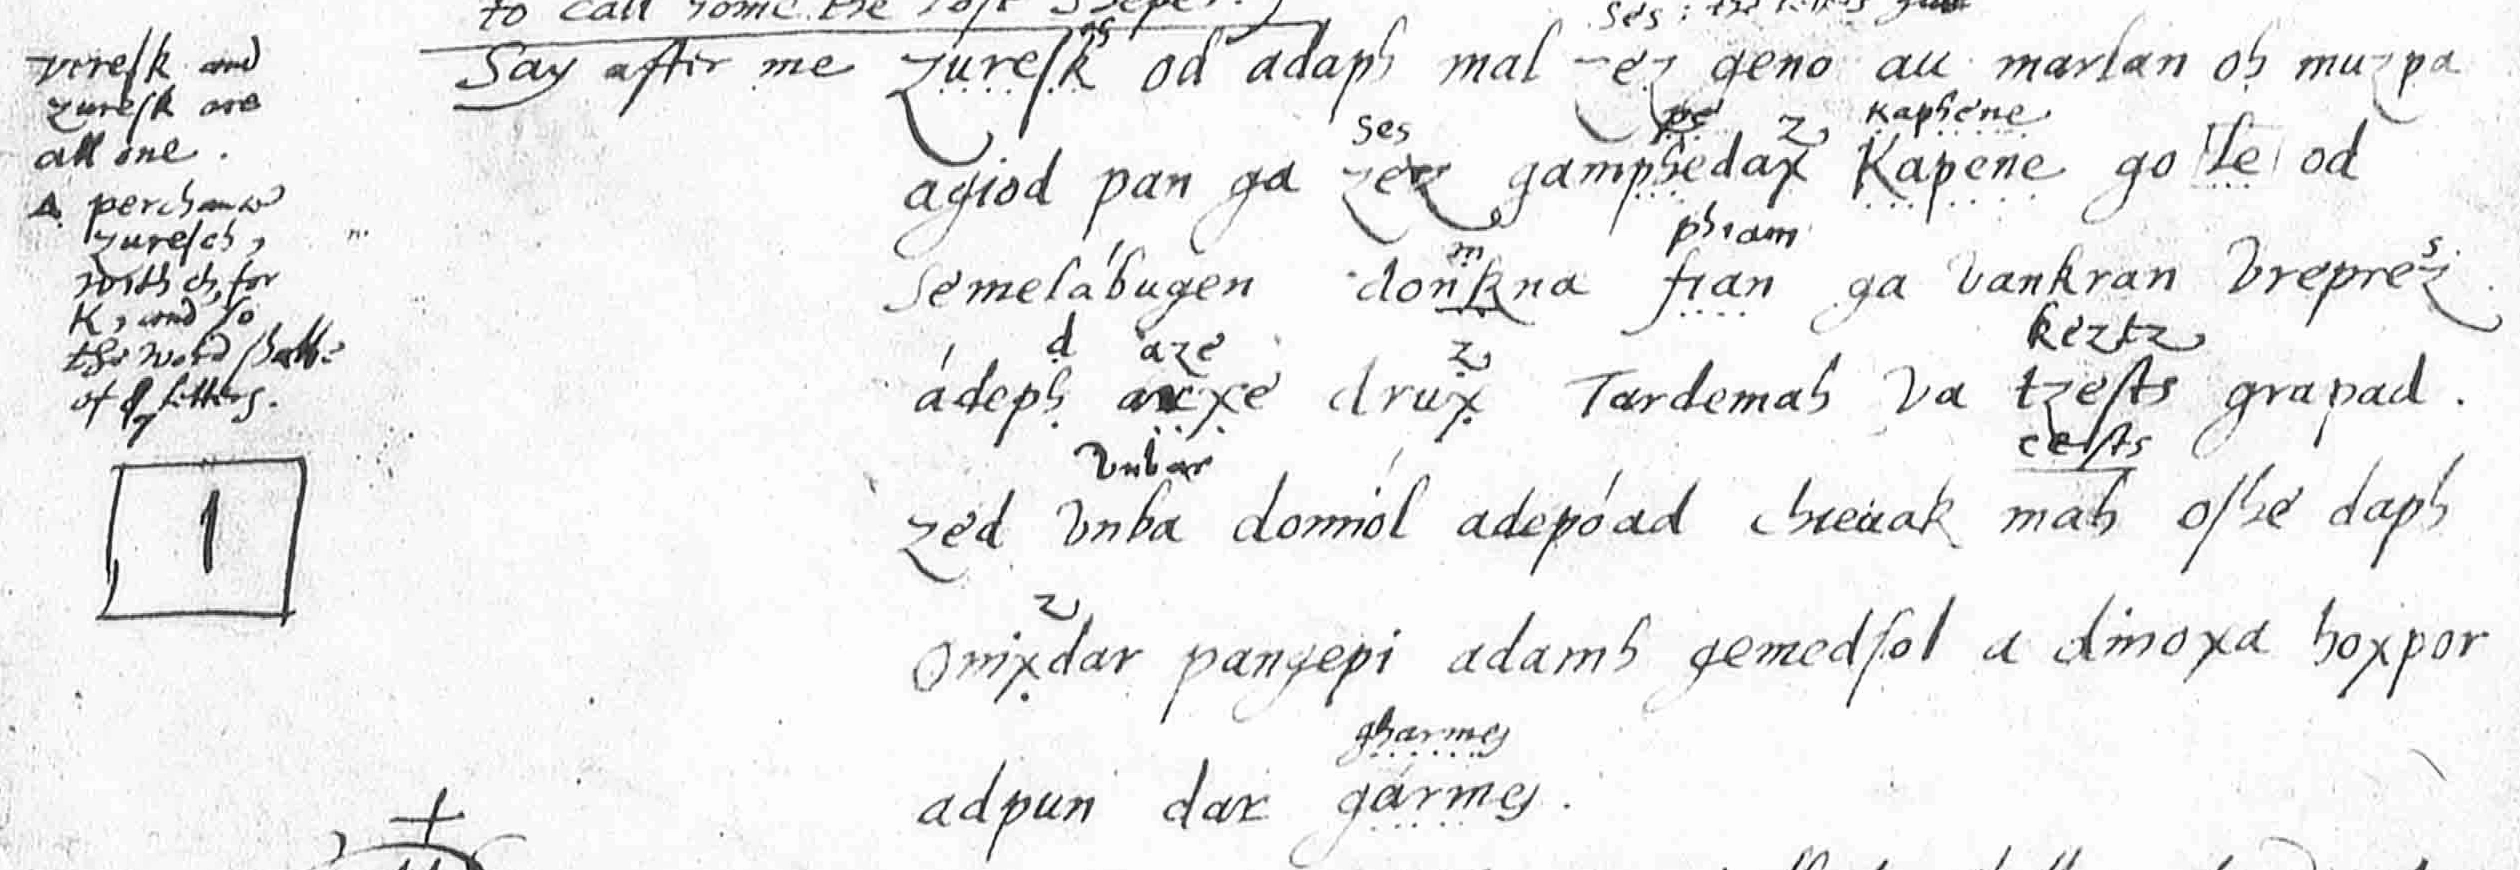 to call home the lost Shepe.
ses: the letters
viresk and
zuresk are
all one.
Δ perchance
zuresch,
with ch, for
K, and so
the word shalbe
of 7 letters.
1
ch
Say after me zuresk od adaph mal zez geno au marlan oh muzpa
ses phe z Kaphene
agiod pan ga zez gamphedax Kapene go le od
m phiam s
semelábugen donkna fian ga vankran vreprez
d aze z keztz
ádeph aixe drux Tardemah va tzests grapad.
vnbar cests
zed vnba domiól adepóad chieuak mah oshe daph
z
onixdar pangepi adamh gemedsol a dinoxa hoxpor
gharmes
adpun dar gármes.